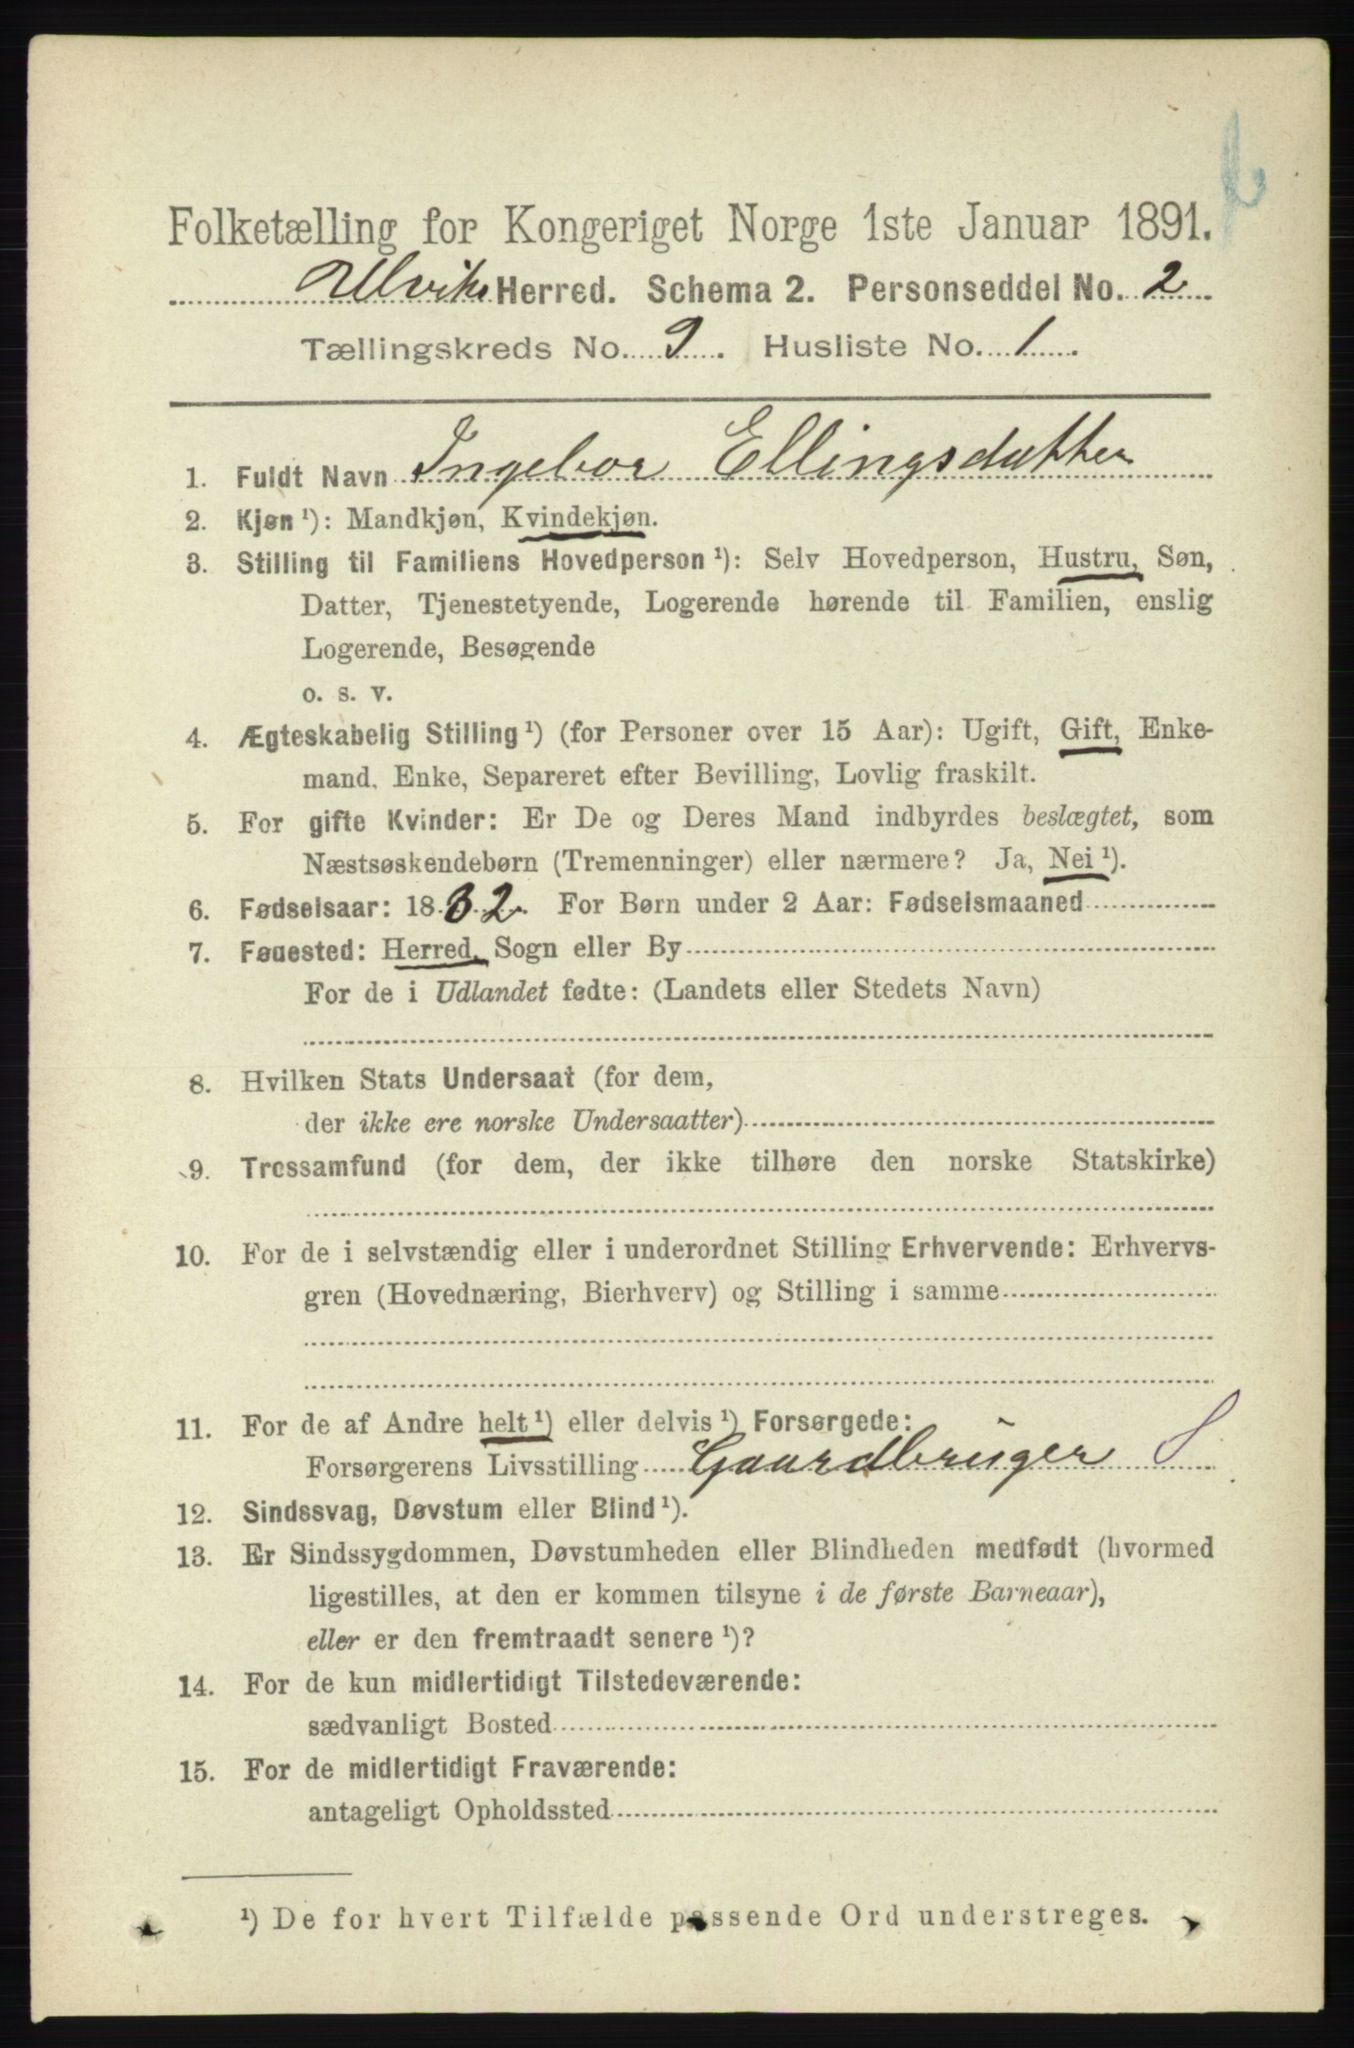 Folketælling for Kongeriget Norge 1ste Januar 1891.
Ulvik Herred. Schema 2. Personseddel No. 2
Tællingskreds No. 9. Husliste No. 1
1. Fuldt Navn Ingebor Ellingsdatter
2. Kjøn ¹): Mandkjøn, Kvindekjøn.
3. Stilling til Familiens Hovedperson ¹): Selv Hovedperson, Hustru, Søn,
Datter, Tjenestetyende, Logerende hørende til Familien, enslig
Logerende, Besøgende
o. s. v.
4. Ægteskabelig Stilling ¹) (for Personer over 15 Aar): Ugift, Gift, Enke-
mand, Enke, Separeret efter Bevilling, Lovlig fraskilt.
5. For gifte Kvinder: Er De og Deres Mand indbyrdes beslægtet, som
Næstsøskendebørn (Tremenninger) eller nærmere? Ja, Nei ¹).
6. Fødselsaar: 1832. For Børn under 2 Aar: Fødselsmaaned
7. Føuested: Herred, Sogn eller By
For de i Udlandet fødte: (Landets eller Stedets Navn)
8. Hvilken Stats Undersaat (for dem,
der ikke ere norske Undersaatter)
9. Trossamfund (for dem, der ikke tilhøre den norske Statskirke)
10. For de i selvstændig eller i underordnet Stilling Erhvervende: Erhvervs-
gren (Hovednæring, Bierhverv) og Stilling i samme
11. For de af Andre helt ¹) eller delvis ¹) Forsørgede:
Forsørgerens Livsstilling Gaardbruger S
12. Sindssvag, Døvstum eller Blind ¹).
13. Er Sindssygdommen, Døvstumheden eller Blindheden medfødt (hvormed
ligestilles, at den er kommen tilsyne i de første Barneaar),
eller er den fremtraadt senere ¹)?
14. For de kun midlertidigt Tilstedeværende:
sædvanligt Bosted
15. For de midlertidigt Fraværende:
antageligt Opholdssted
¹) De for hvert Tilfælde passende Ord understreges.